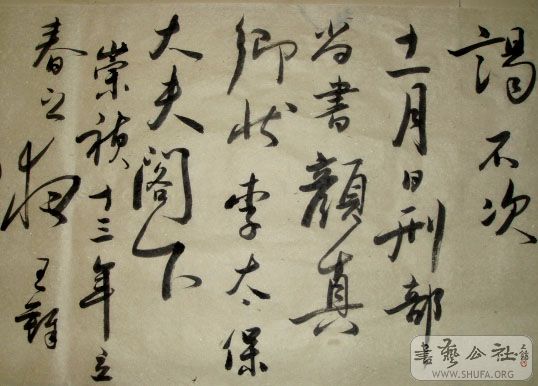 謁不次
十一月日刑部
尚書顏真
卿狀李太保
大夫閣下
崇禎十三年立
春之夜 王鐸
書藝公社
WWW.SHUFA.ORG